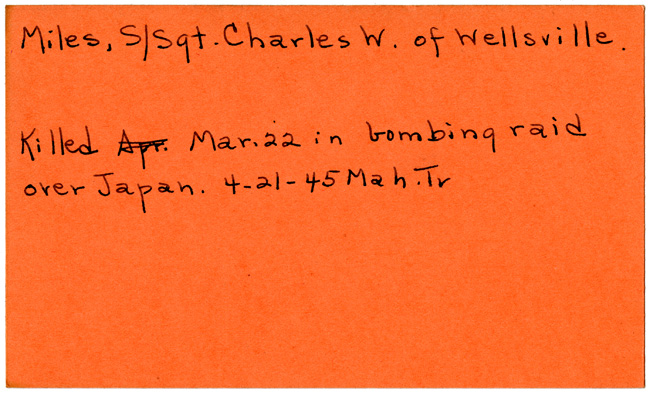 Miles, S/Sgt. Charles W. of Wellsville.
Killed Apr. Mar. 22 in bombing raid
over Japan. 4-21-45 Mah. Tr